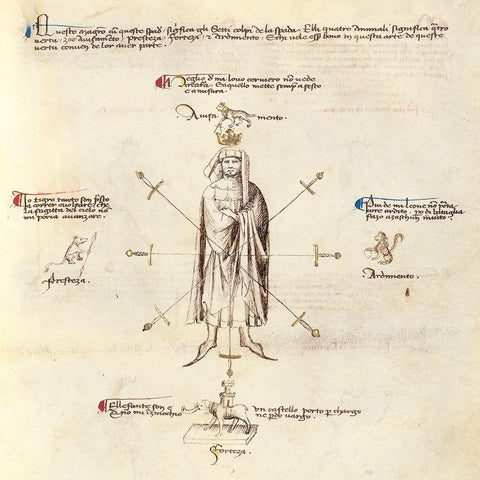 Questo magro cum queste spade significa gli Setti colpi de la spada. Elli quatro animali significa quatro
vertu, zoe avisamento, Presteza, Forteza, & Ardimento. E chi vole esser bono in questa arte de queste
vertu conven de lor aver parte.
Meglio de mi lovo cerviero no vede
creatura. E aquello mette sempre a sesto
e a misura.
Avisa mento.
Io tigro tanto son presto
a correr e voltare, che
la sagitta del cielo non
mi poria avanzare.
Presteza.
Piu de mi leone non porta
core ardito, pero di bataglia
fazo a zaschun invito.
Ardimento.
Ellefante son e
un castello porto per chargo
E non mi inzinochio
ne perdo vargo.
Forteza.